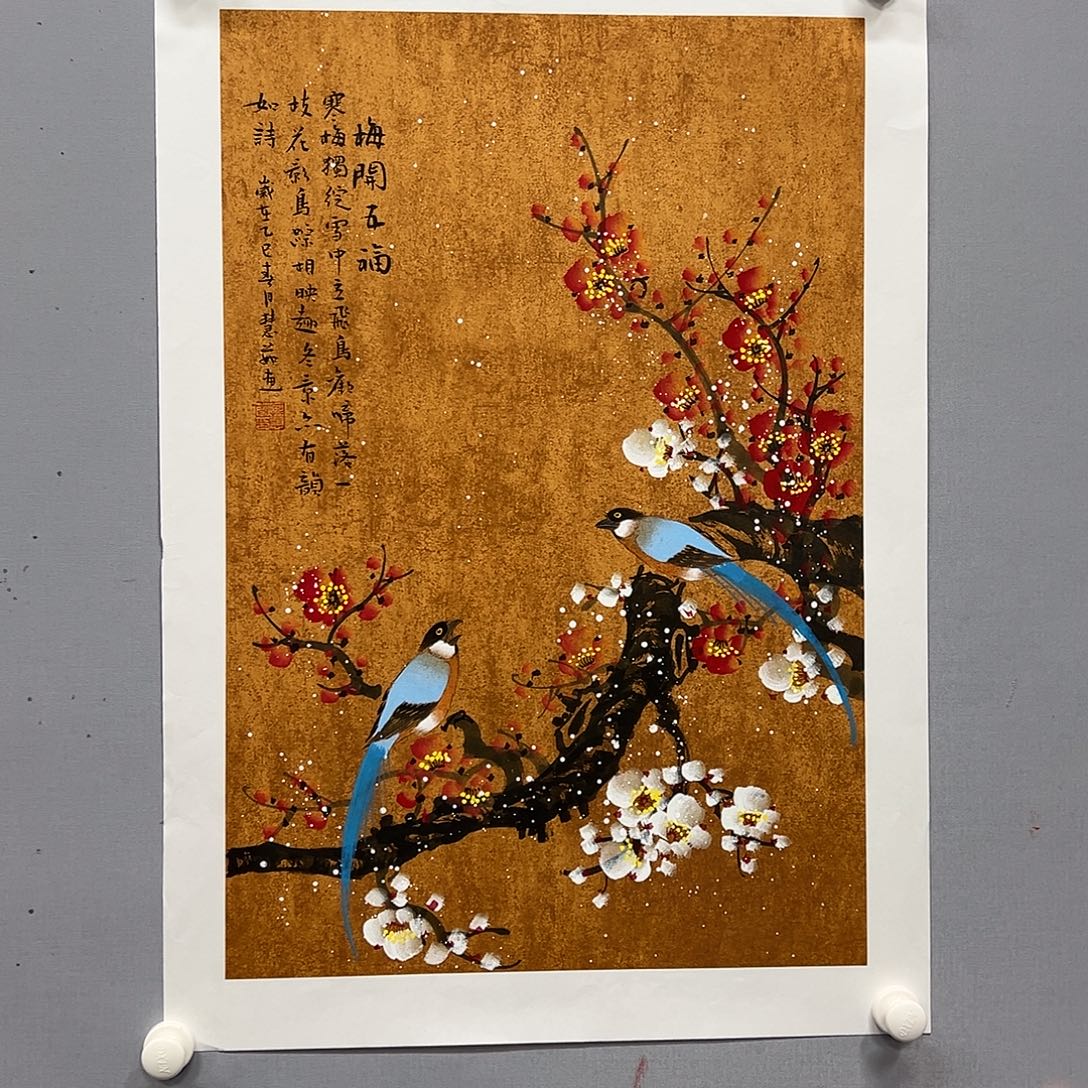 梅開五福
寒梅獨綻雪中立飛鳥歡啼落一
枝花影鳥踪相映趣冬景亦有韻
如詩
歲在乙巳春月慧茹画